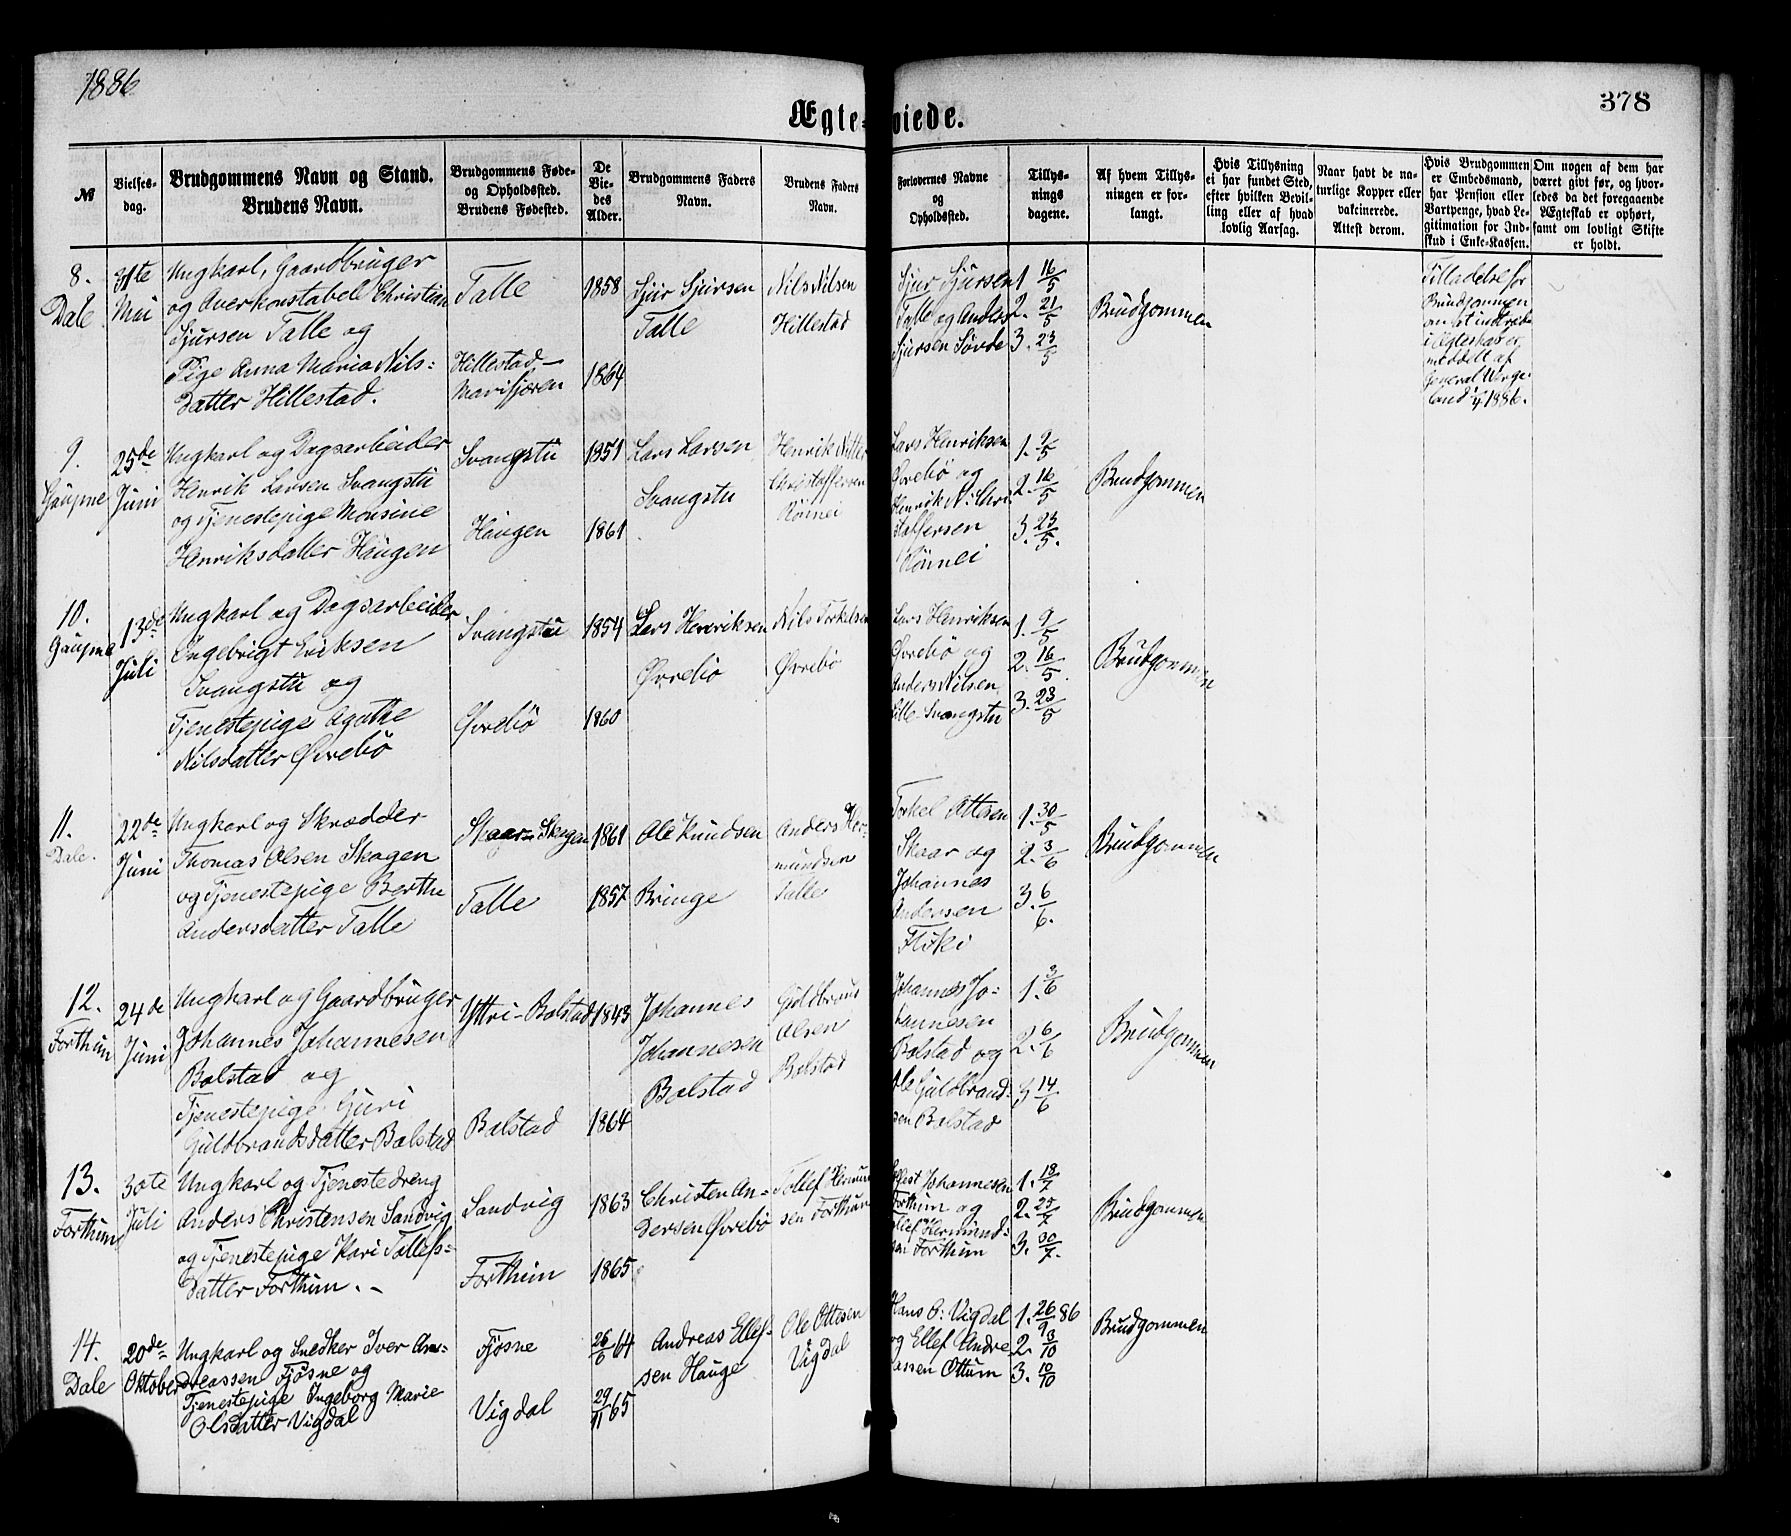 1886
378
Ægteviede.
№
Vielses-
dag.
Brudgommens Navn og Stand.
Brudens Navn.
Brudgommens Føde-
og Opholdssted.
Brudens Fødested.
De
Vie-
des
Alder.
Brudgommens Faders
Navn.
Brudens Faders
Navn.
Forlovernes Navne
og
Opholdssted.
Tillys-
nings
dagene.
Af hvem Tillys-
ningen er for-
langt.
Hvis Tillysning
ei har fundet Sted,
efter hvilken Bevil-
ling eller af hvad
lovlig Aarsag.
Naar havt de na-
turlige Kopper eller
vakcinerede.
Attest derom.
Hvis Brudgommen
er Embedsmand,
har Pension eller
Vartpenge, hvad Le-
gitimation for Ind-
skud i Enke-Kassen.
Om nogen af dem har
været givt før, og hvor-
ledes da det foregaaende
Ægteskab er ophørt,
samt om lovligt Skifte
er holdt.
8.
Dale
31te
Mai
Ungkarl, Gaardbruger
og Overkonstabel Christian
Sjursen Talle og
Pige Anna Maria Nils-
Datter Hillestad.
Talle
Hillestad-
Marifjæren
1858
1864
Sjur Sjursen
Talle
Nils Nilsen
Hillestad
Sjur Sjursen
Talle og Anders
Sjursen Søvde
1. 16/5
2. 21/5
3. 23/5
Brudgommen
Tilladelse for
Brudgommen
om at indtræde
i Ægteskab er
meddelt af
General Werge-
land 1886.
9.
Gaupne
25de
Juni
Ungkarl og Dagsarbeider
Henrik Larsen Svangstu
og Tjenestepige Monsine
Henriksdatter Haugen
Svangstu
Haugen
1851
1861
Lars Larsen
Svangstu
Henrik Nitter
Christoffersen
Rønnei
Lars Henriksen
Øvrebø og
Henrik N. Chri
stoffersen
Rønnei
1. 9/5
2. 16/5
3. 23/5.
Brudgommen
10.
Gaupne
13de
Juli
Ungkarl og Dagsarbeider
Ingebrigt Eriksen
Svangstu og
Tjenestepige Agathe
Nilsdatter Øvrebø
Svangstu
Øvrebö
1854
1860
Lars Henriksen
Øvrebø
Nils Torkelsen
Øvrebø
Lars Henriksen
Øvrebø og
Anders Nilsen
Lille-Svangstu
1. 9/5
2. 16/5
3. 23/5
Brudgommen
11.
Dale.
22de
Juni
Ungkarl og Skrædder
Thomas Olsen Skogen
og Tjenestepige Berthe
Andersdatter Talle
Skaar-Skogen
Talle
1861
1857
Ole Knudsen
Bringe
Anders Her-
mundsen
Talle
Torkel Ottesen
Skaar og
Johannes
Andersen
Fløki
1. 30/5
2. 3/6
3. 6/6.
Brudgommen
12.
Forthun
24de
Juni
Ungkarl og Gaardbruger
Johannes Johannesen
Bolstad og
Tjenestepige Guri
Guldbrandsdatter Bolstad
Yttri-Bolstad
Bolstad
1843
1864
Johannes
Johannesen
Bolstad
Guldbrand
Olsen
Bolstad
Johannes Jo-
hannesen
Bolstad og
Ole Guldbrand-
sen Bolstad
1. 3/6
2. 6/6
3 14/6
Brudgommen
13.
Forthun
30te
Juli
Ungkarl og Tjenestedreng
Anders Christensen Sandvig
og Tjenestepige Kari Tollefs-
Datter Forthun. -
Sandvig
Forthun
1863
1865
Christen An-
dersen Øvrebö
Tollef Hermund
sen Forthun
Johannesen
Forthun og
Tollef Hermund-
sen Forthun
1. 18/7
2. 25/7
3. 30/7.
Brudgommen
14.
Dale
20de
Oktober
Ungkarl og Snedker Iver An-
dreassen Fjøsne og
Tjenestepige Ingeborg Marie
Olsdatter Vigdal
Fjøsne
Vigdal
26/6 64
29/11 65
Andreas Ellef-
sen Hauge
Ole Ottesen
Vigdal
Hans O: Vigdal
og Ellef Andre
assen Ottum
1. 26/9 86
2. 3/10
3. 10/10
Brudgommen